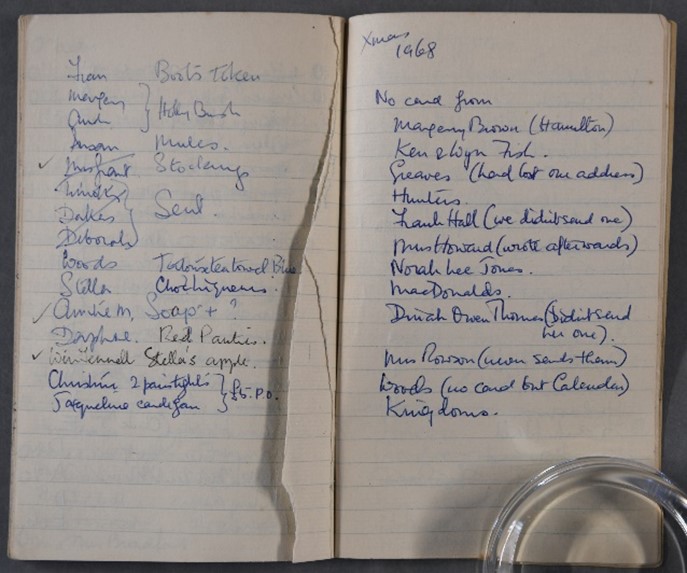 Fran Boots Token
Margery } Holey Brush
Susan Mules.
✓ Mrs Grant Stockings
Sent.
Dukas
Deborah
Woods Teatowel Blue
Stella
✓ Auntie M, Soap + ?
Daphne. Red Panties.
✓ Stella's apple.
Christine 2 pairs tights } £5. P.O.
Jacqueline cardigan
Xmas
1968
No card from
Margery Brown (Hamilton)
Ken & Wyn Fish.
Greaves (had lost our address)
Hunters.
Frank Hall (we didn't send one)
Mrs Howard (wrote afterwards)
Norah Lee Jones.
MacDonalds.
Dinah Owen Thomas (didn't send
her one).
Mrs Rowson (never sends them)
Woods (no card but Calendar)
Kingdoms.